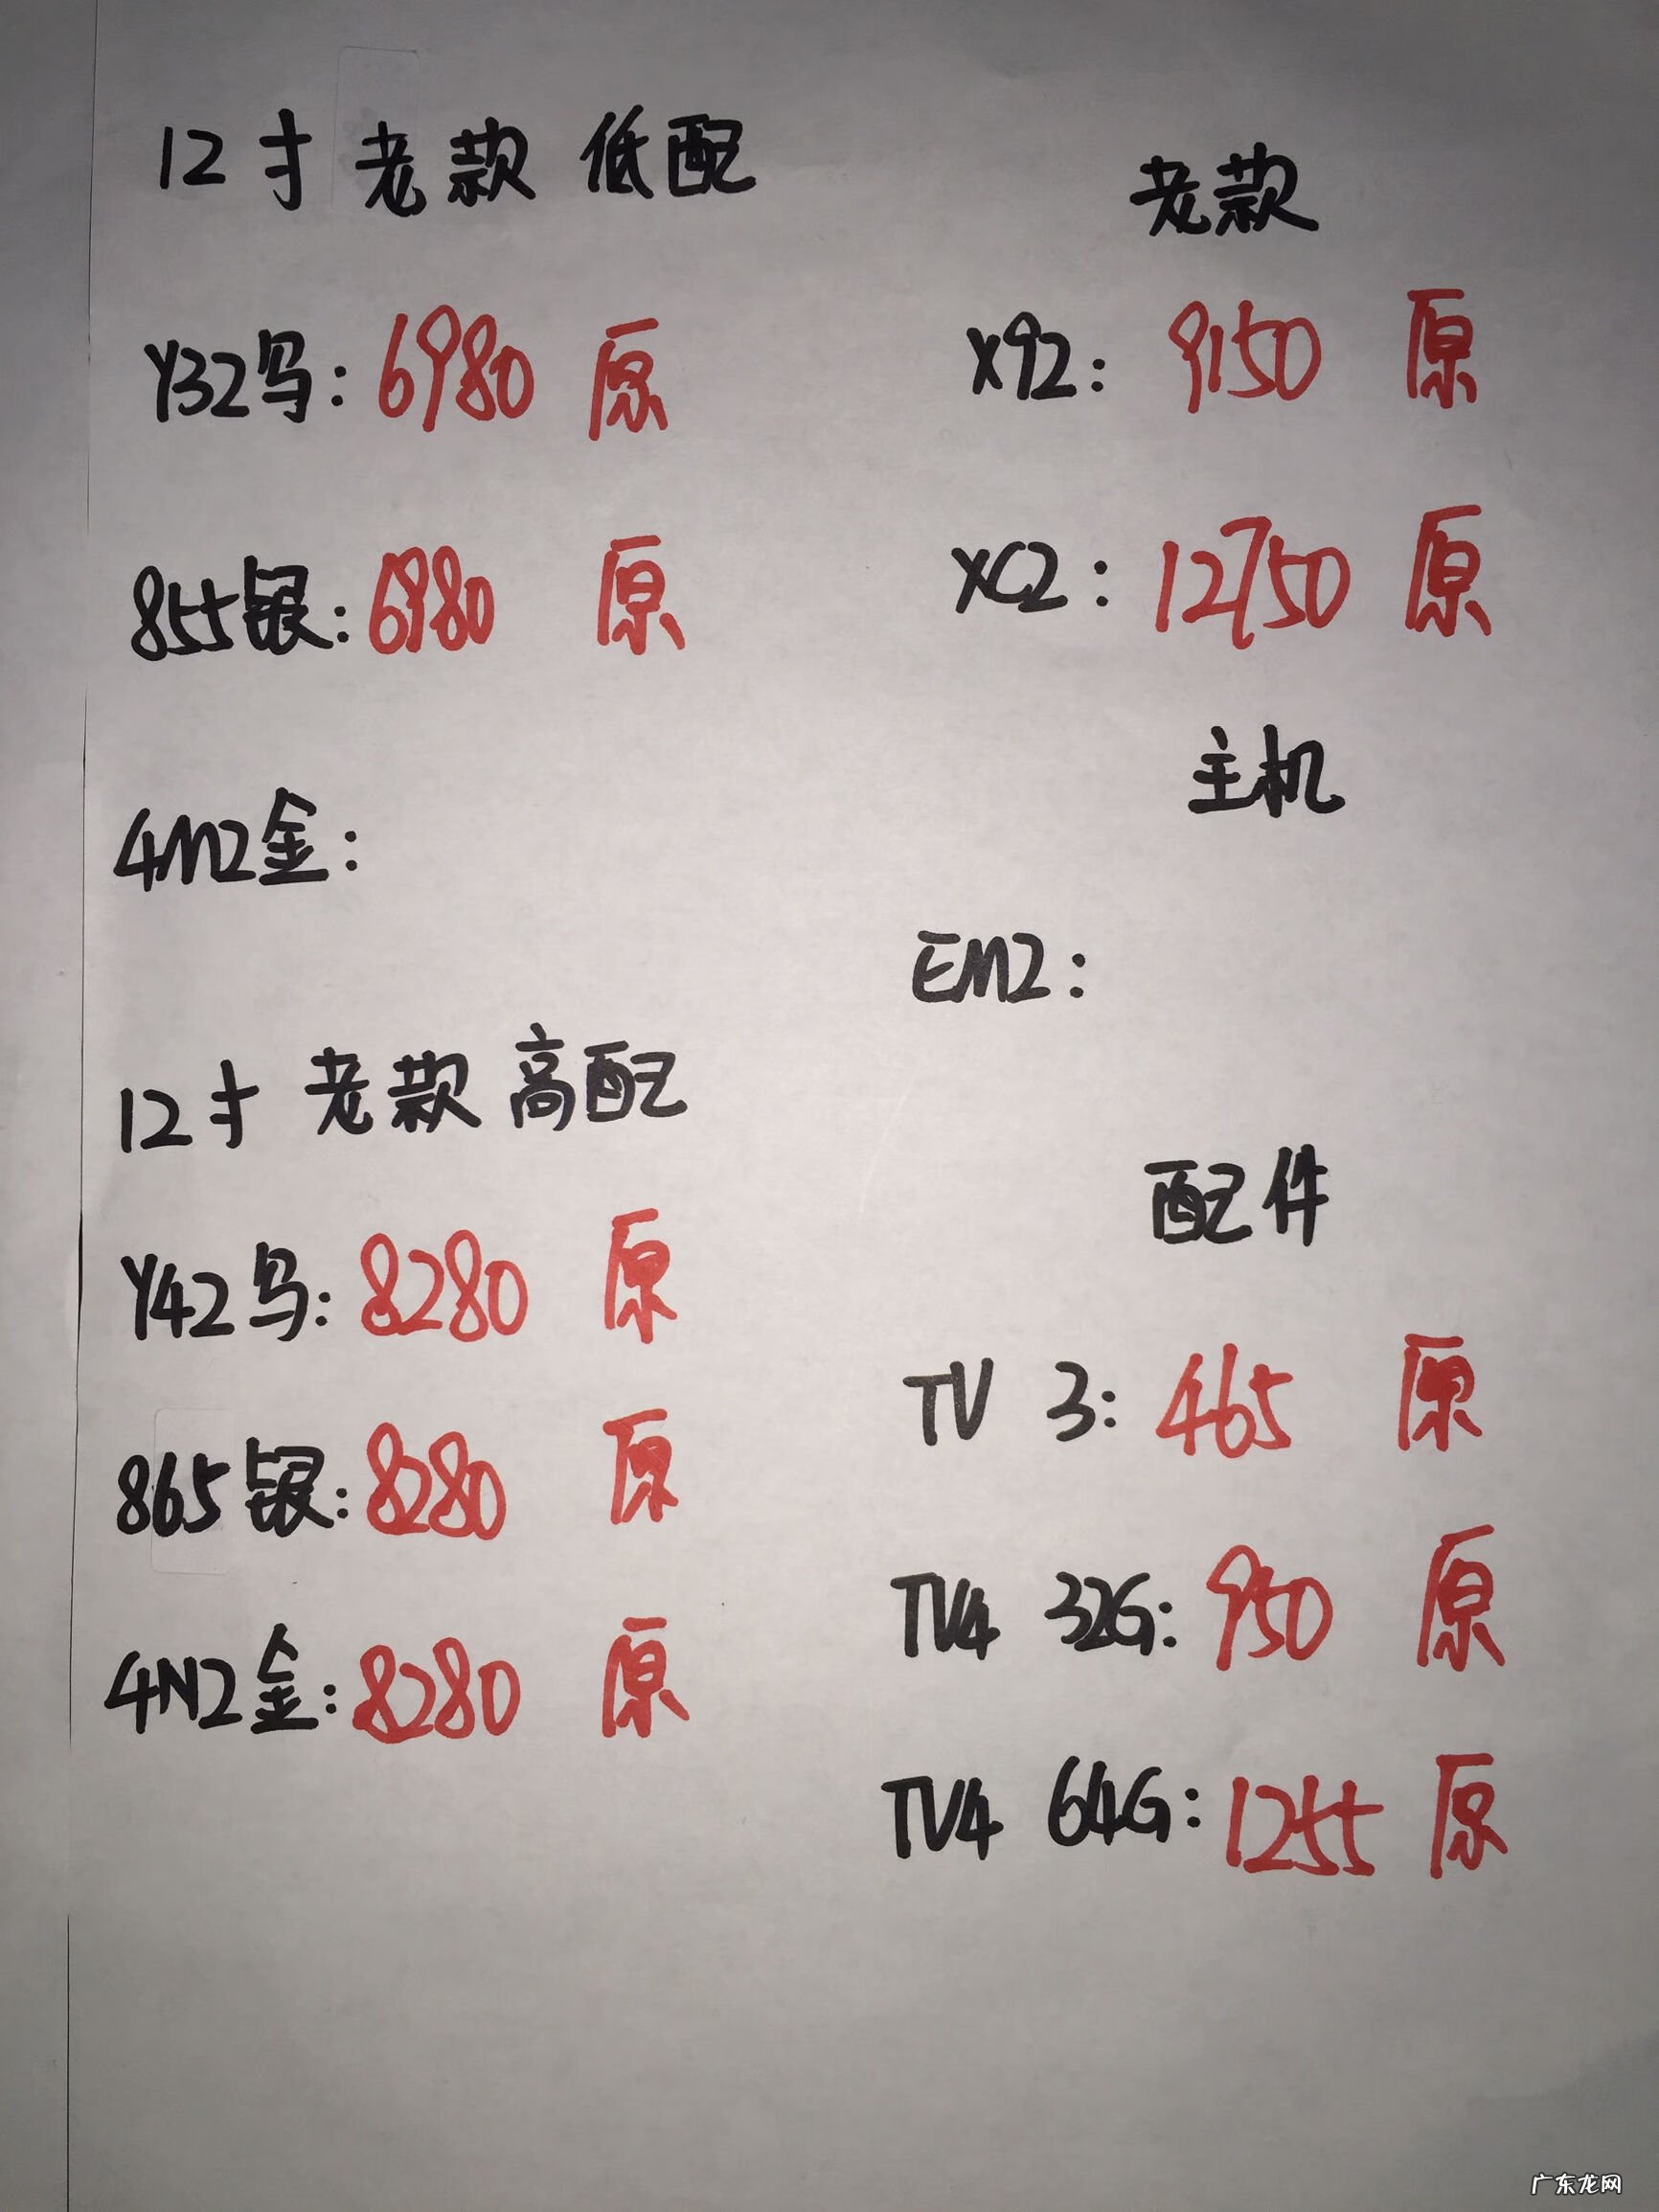 12寸 老款 低配
Y32鸟:6980 原
855银:6980 原
4M2金:
12寸 老款 高配
Y42鸟:8280 原
865银:8280 原
4N2金:8280 原
老款
X92:9150 原
XC2:12750 原
主机
EM2:
配件
TV 3:465 原
TV4 32G:950 原
TV4 64G:1255 原
广东龙网